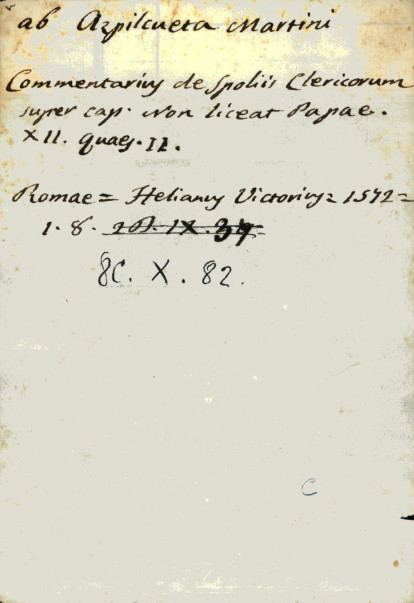 ab Azpilcueta Martini
Commentarius de Spoliis Clericorum
super cap. Non liceat Papae.
XII. quaes. II.
Romae = Helianus Victorius = 1572 =
1. 8. 2 A. IX. 37
8C. X. 82.
C